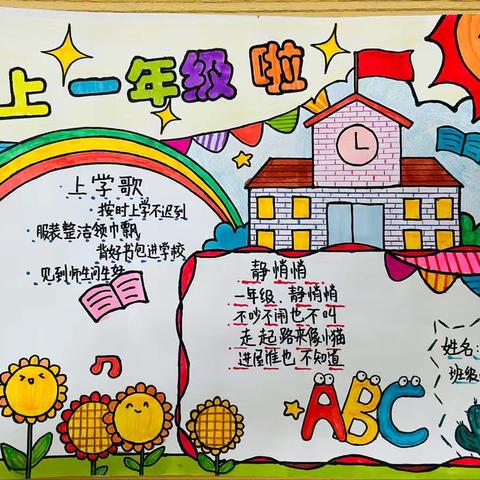 上一年级啦
上学歌
按时上学不迟到
服装整洁领巾飘
背好书包进学校
见到师生问生好
静悄悄
一年级，静悄悄
不吵不闹也不叫
走起路来像小猫
进屋谁也不知道
姓名：
班级
ABC